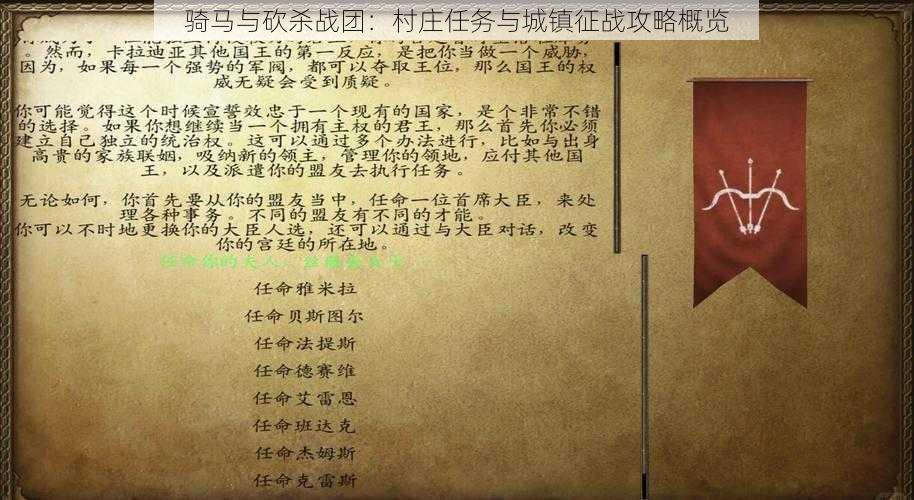 骑马与砍杀战团：村庄任务与城镇征战攻略概览
。然而，卡拉迪亚其他国王的第一反应，是把你当做一个威胁，
因为，如果每一个强势的军阀，都可以夺取王位，那么国王的权
威无疑会受到质疑。
你可能觉得这个时候宣誓效忠于一个现有的国家，是个非常不错
的选择。如果你想继续当一个拥有主权的君王，那么首先你必须
建立自己独立的统治权。这可以通过多个办法进行，比如与出身
高贵的家族联姻，吸纳新的领主，管理你的领地，应付其他国
王，以及派遣你的盟友去执行任务。
无论如何，你首先要从你的盟友当中，任命一位首席大臣，来处
理各种事务。不同的盟友有不同的才能。
你可以不时地更换你的大臣人选，还可以通过与大臣对话，改变
你的宫廷的所在地。
任命你的夫人，
任命雅米拉
任命贝斯图尔
任命法提斯
任命德赛维
任命艾雷恩
任命班达克
任命杰姆斯
任命克雷斯